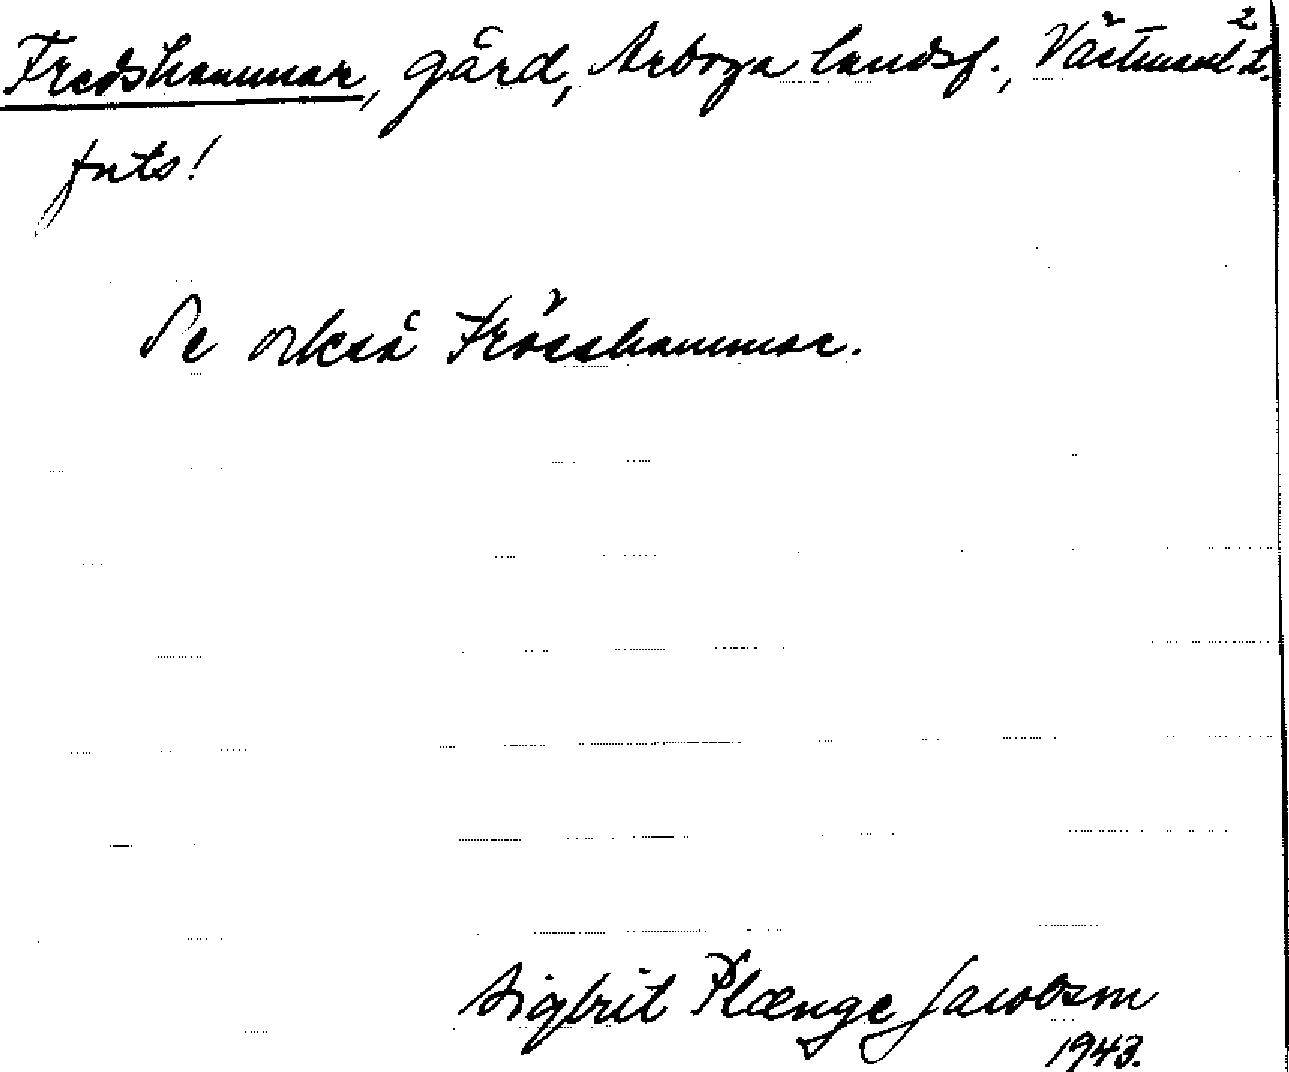 Fredshammar, gård, Arboga landsf., Västmanl. l. 2
fnts!
Se också Frösshammar.
Sigbrit Plænge Jacobson
1943.